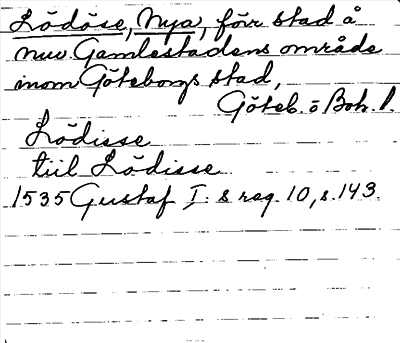 Lödöse, Nya, förr stad å
nuv Gamlestadens område
inom Göteborgs stad,
Göteb. o Boh. l.
Lödisse
tiil Lödisse
1535 Gustaf I:s reg. 10, s. 143.